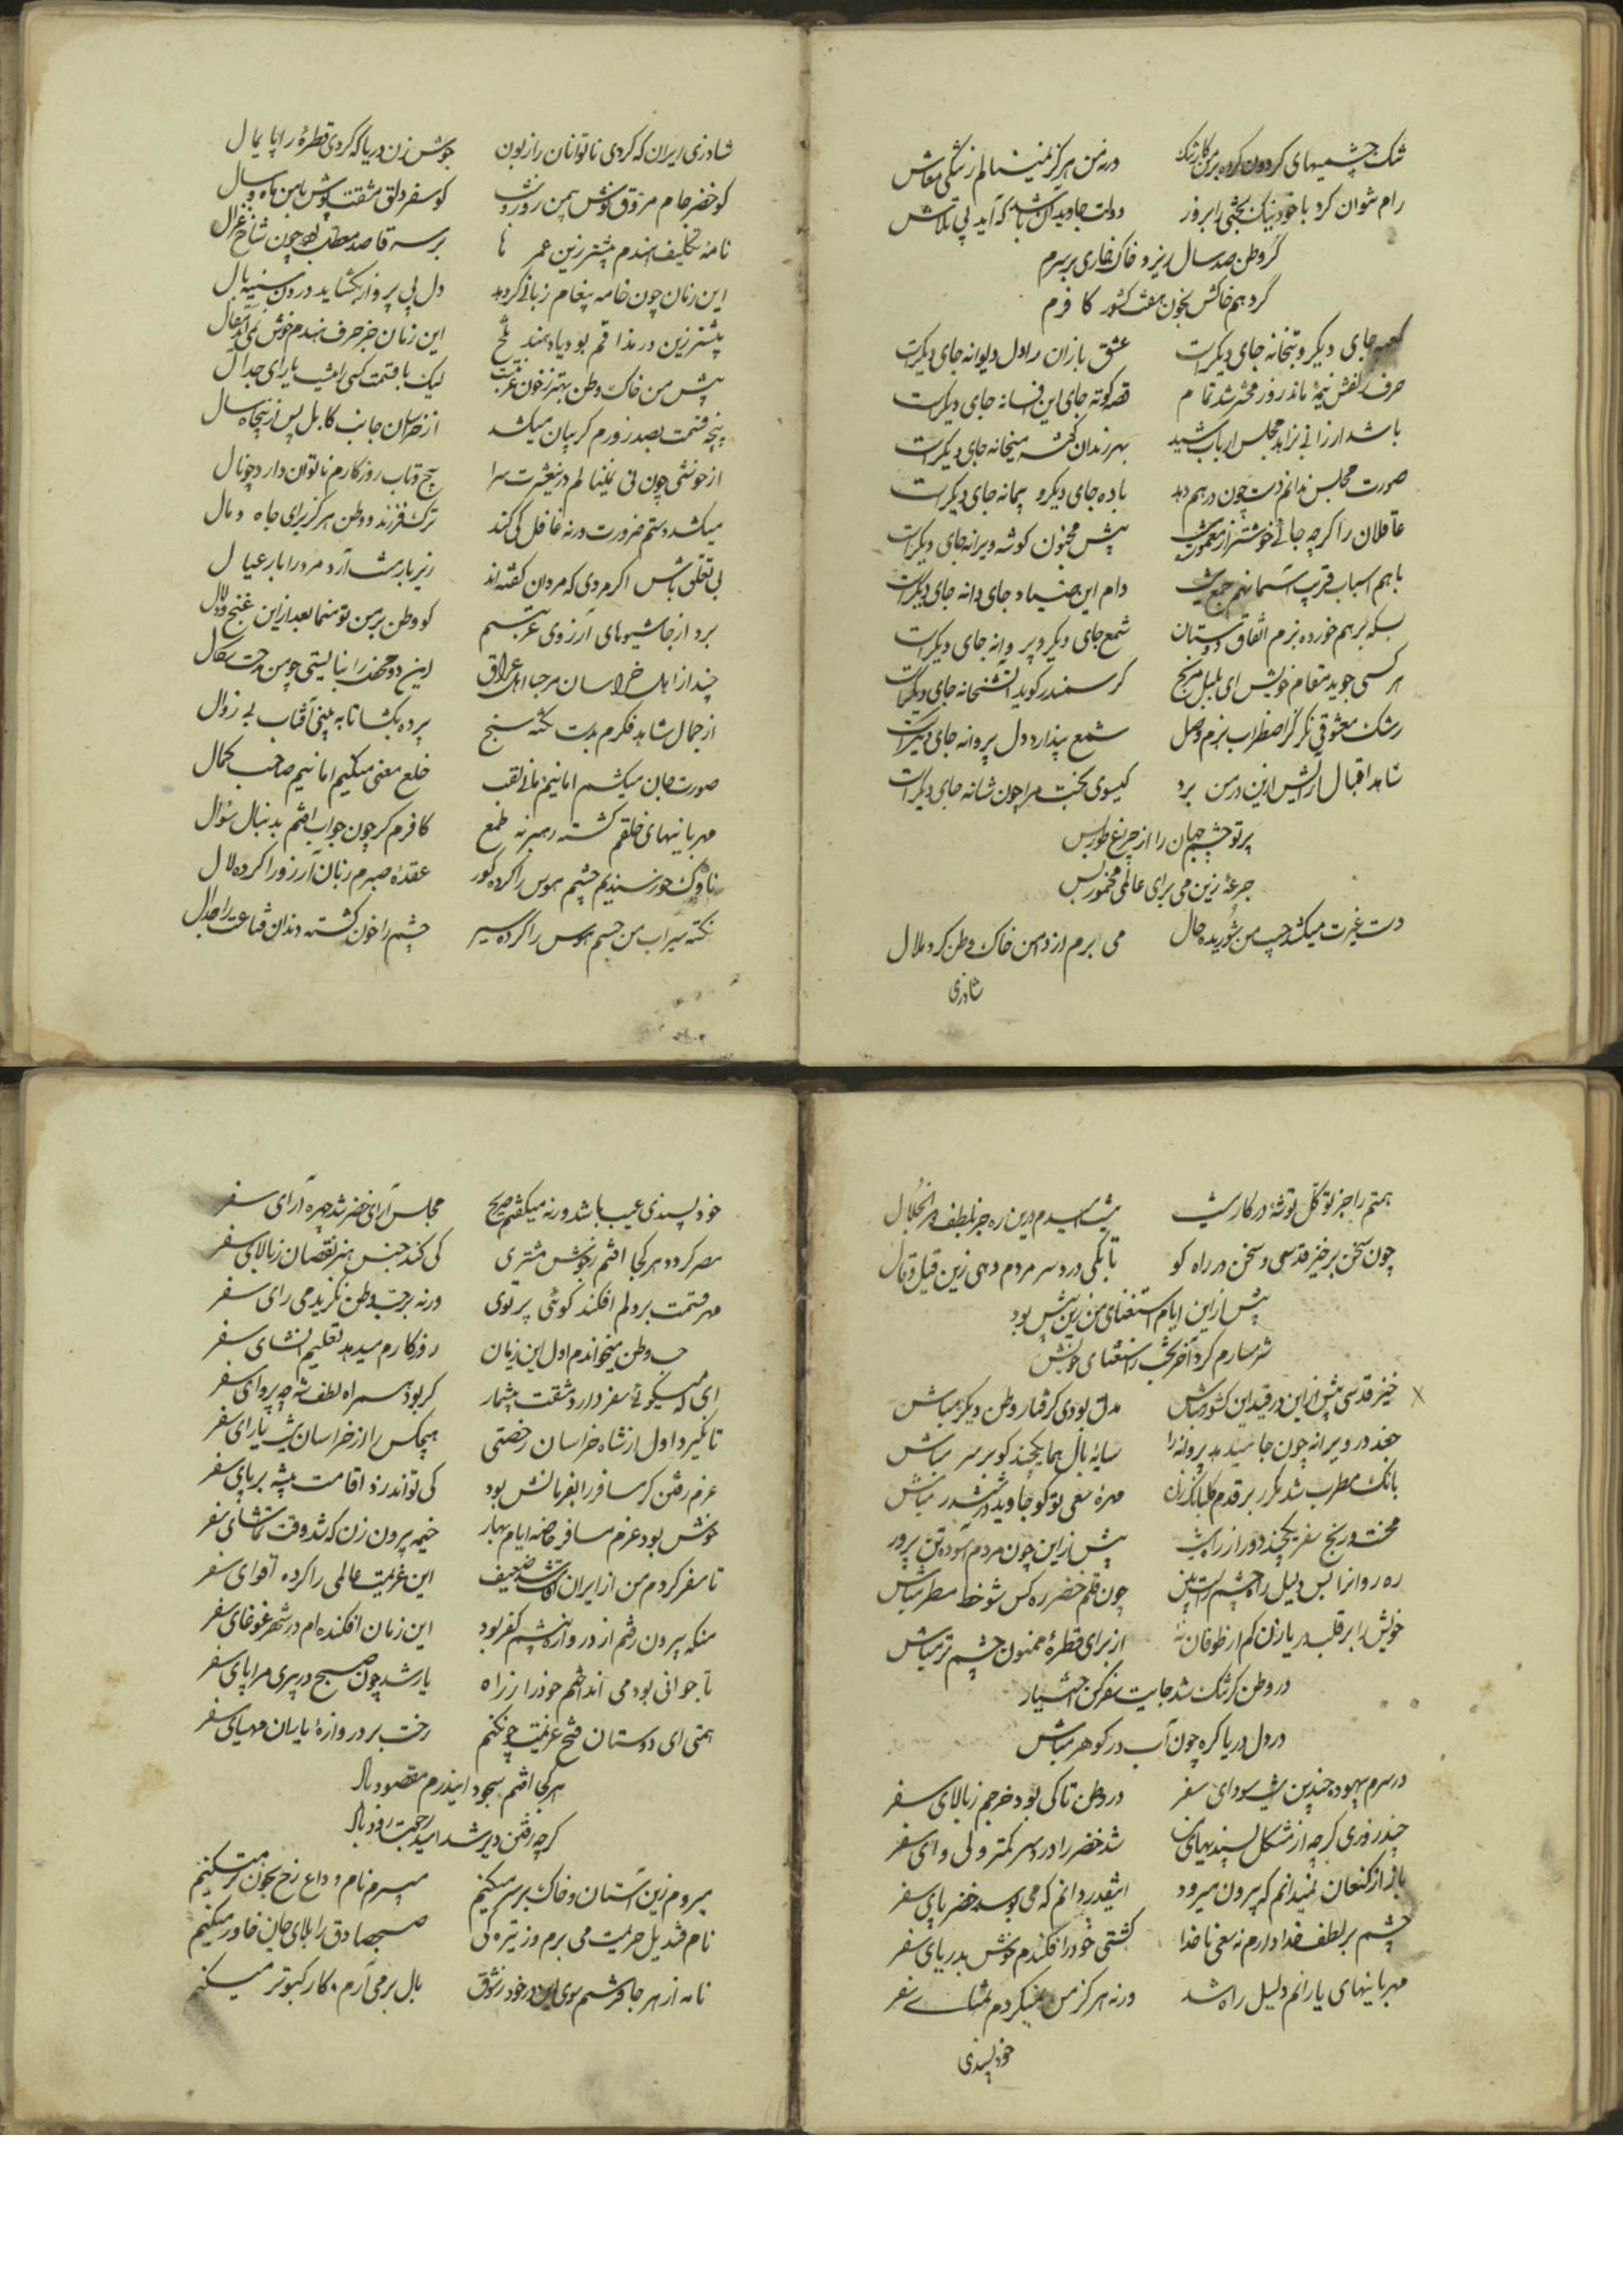 تنک چشمیهای کردون کرده بر من کار تنک ورنه من هرکز نمینالم ز تنکی معاش
رام نتوان کرد با خود نیک بختی را بزور دولت جاوید آن باشد که آید بی تلاش
کر وطن صد سال ریزد خاک خواری بر سرم
کر دهم خاکش بخون هفت کشور کافرم
کعبه جای دیکر و بتخانه جای دیکرست عشق بازان را دل دیوانه جای دیکرست
حرف زلفش نیمهٔ ماند و روز محشر شد تمام قصه کوته جای این افسانه جای دیکرست
باشد ارزانی بزاهد مجلس ارباب شید بهر رندان کوشهٔ میخانه جای دیکرست
صورت مجلس ندانم دست چون درهم دهد باده جای دیکر و پیمانه جای دیکرست
عاقلان را کرچه جائی خوشتر از معموره نیست پیش مجنون کوشه ویرانه جای دیکرست
باهم اسباب فریب آسمانهم جمع نیست دام این صیاد جای دانه جای دیکرست
بسکه برهم خورده بزم اتفاق دوستان شمع جای دیکر و پروانه جای دیکرست
هر کسی جوید مقام خویش ای بلبل مرنج کر سمندر کوید آتشخانه جای دیکرست
رشک معشوقی نکر کز اضطراب بزم وصل شمع پندارد دل پروانه جای دیکرست
شاهد اقبال آرایش ازین در من برد کیسوی بختت مرا چون شانه جای دیکرست
پرتو چشم جهان را از چراغ طور بس
جرعهٔ زین می برای عالمی مخمور بس
دست غیرت میکشد جیب من شوریده حال می برم از دامن خاک وطن کرد ملال
شادزی
شادزی ایران که کردی ناتوانان را زبون جوش زن دریا که کردی قطرهٔ را پایمال
کو خضر جام مروق نوش پس روز و شب کو سفر دلق مشقت پوش باین ماه و سال
نامهٔ تکلیف هندم پیشتر زین عمرها بر سر قاصد معطل بود چون شاخ غزال
این زمان چون خامه پیغام زبانی کردهد دل پی پرواز بکشاید درون سینه بال
پیشتر زین در مذاقم بود یاد هند تلخ این زمان جز حرف هندم خوش نمی آید مقال
پیش من خاک وطن بهتر ز خون غربتست لیک با قسمت کسی را نیست یارای جدال
پنجه قسمت بصد زورم کریبان میکشد از خراسان جانب کابل پس از پنجاه سال
از خوشی چون نی نمینالم در عشرت سرا پیچ و تاب روزکارم ناتوان دارد چو نال
میکشد دستم ضرورت ورنه غافل کی کند ترک فرزند و وطن هرکز برای جاه و مال
بی تعلق باش اکر مردی که مردان کفته اند زیر بار منت آرد مرد را بار عیال
برد از جا شیوهای آرزوی غربتم کو وطن بر من تو منما بعد ازین غنج و دلال
چند از اهل خراسان مرحبا اهل عراق این دو مصحف را نبایستی چو من رحمت سکال
از جمال شاهد فکرم بدست نکته سنج پرده بکشا تا به بینی آفتاب بی زوال
صورت جان میکشم اما نیم مانی لقب خلع معنی میکنم اما نیم صاحب کمال
مهربانیهای خلقم کشته رهبر نه طمع کافرم کر چون جواب افتم بدنبال سؤال
ناوک خورسندیم چشم هوس را کرده کور عقدهٔ صبرم زبان آرزو را کرده لال
نکته سیراب من چشم هوس را کرده سیر چشم را خون کشته دندان قناعت را حلال
همتم را جز توکل توشهٔ در کار نیست نیست امیدم درین ره جز بلطف ذوالجلال
چون سخن برخیز قدسی و سخن در راه کو تا بکی دردسر مردم دهی زین قیل و قال
پیش ازین ایام استغنای من زین بیش بود
شرمسارم کرد آخر بخت از استغنای خویش
خیز قدسی پیش ازین در قید این کشور مباش مدتی بودی کرفتار وطن دیکر مباش
جغد در ویرانه چون جا میدهد پروانه را سایهٔ بال هما یکچند کو بر سر مباش
بانک مطرب شد مکرر بر قدم کلبانک زن مهرهٔ سعی تو کو جاوید در ششدر مباش
محنت و رنج سفر یکچند دور از راه نیست پیش ازین چون مردم آسوده تن پرور مباش
ره روانرا بس دلیل راه چشم راست بین چون قلم خضر ره کس شو خط مسطر مباش
خویش را بر قلب دریا زن کم از طوفان نهٔ از برای قطرهٔ ممنون چشم تر مباش
در وطن کر تنک شد جایت سفر کن اختیار
در دل دریا کره چون آب در کوهر مباش
در سرم بیهوده چندین نیست سودای سفر در وطن تا کی بود خرجم ز بالای سفر
چند روزی کرچه از مشکل پسندیهای من شد خضر را دردسر کمتر ولی وای سفر
باز از کنعان نمیدانم که بیرون میرود اینقدر دانم که می بوسد خضر پای سفر
چشم بر لطف خدا دارم نه سعی ناخدا کشتی خود را فکندم خوش بدریای سفر
مهربانیهای یارانم دلیل راه شد ورنه هرکز من نمیکردم تمنای سفر
خودپسندی
خودپسندی عیب باشد ورنه میکفتم صریح مجلس آرای خضر شد چهره آرای سفر
مصر کردد هر کجا افتم ز جوش مشتری کی کند جنس هنر نقصان ز بالای سفر
مهر قسمت بر دلم افکند کوئی پرتوی ورنه بر حب وطن نکزیدمی رای سفر
حب وطن میخواندم اول این زمان روزکارم میدهد تعلیم انشای سفر
ای که میکوئی سفر دارد مشقت بیشمار کر بود همراه لطف شه چه پروای سفر
تا نکیرد اول از شاه خراسان رخصتی هیچکس را از خراسان نیست یارای سفر
عزم رفتن کر مسافر را بفرمانش بود کی تواند زد اقامت تیشه بر پای سفر
خوش بود عزم مسافر خاصه ایام بهار خیمه بیرون زن که شد وقت تماشای سفر
تا سفر کردم من از ایران اقامت شد ضعیف این عزیمت عالمی را کرده آقوای سفر
منکه بیرون رفتم از دروازه پیشم کفر بود این زمان افکنده ام در شهر غوغای سفر
تا جوانی بود می انداختم خود را ز راه یار شد چون صبح در پیری مرا پای سفر
همتی ای دوستان فتح عزیمت چون کنم رخت بر دروازهٔ یاران مهیای سفر
هر کجا افتم سجود اینذرم مقصود باد
کرچه رفتن دیر شد امید رجعت زود باد
میروم زین آستان و خاک بر سر میکنم میبرم نام وداع و رخ بخون تر میکنم
نام قندیل حریمت می برم وز تیره کی صبح صادق را بلای جان خاور میکنم
نامه از هر جا فرستم سوی این در خود ز شوق بال برمی آرم و کار کبوتر میکنم